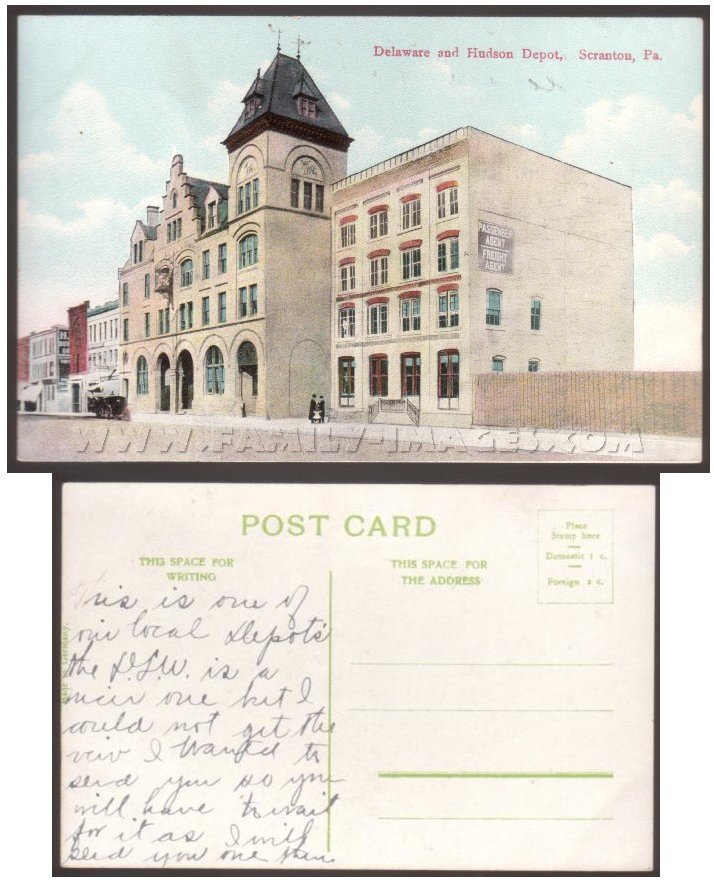 Delaware and Hudson Depot, Scranton, Pa.
PASSENGER
AGENT
FREIGHT
AGENT
WWW.FAMILY-IMAGES.COM
POST CARD
Place
Stamp here
Domestic 1 c.
Foreign 2 c.
THIS SPACE FOR
WRITING
THIS SPACE FOR
THE ADDRESS
This is one of
our local Depots
the D.L.W. is a
nicer one but I
could not get the
veiw I wanted to
send you so you
will have to wait
for it as I will
send you one then
Germany.